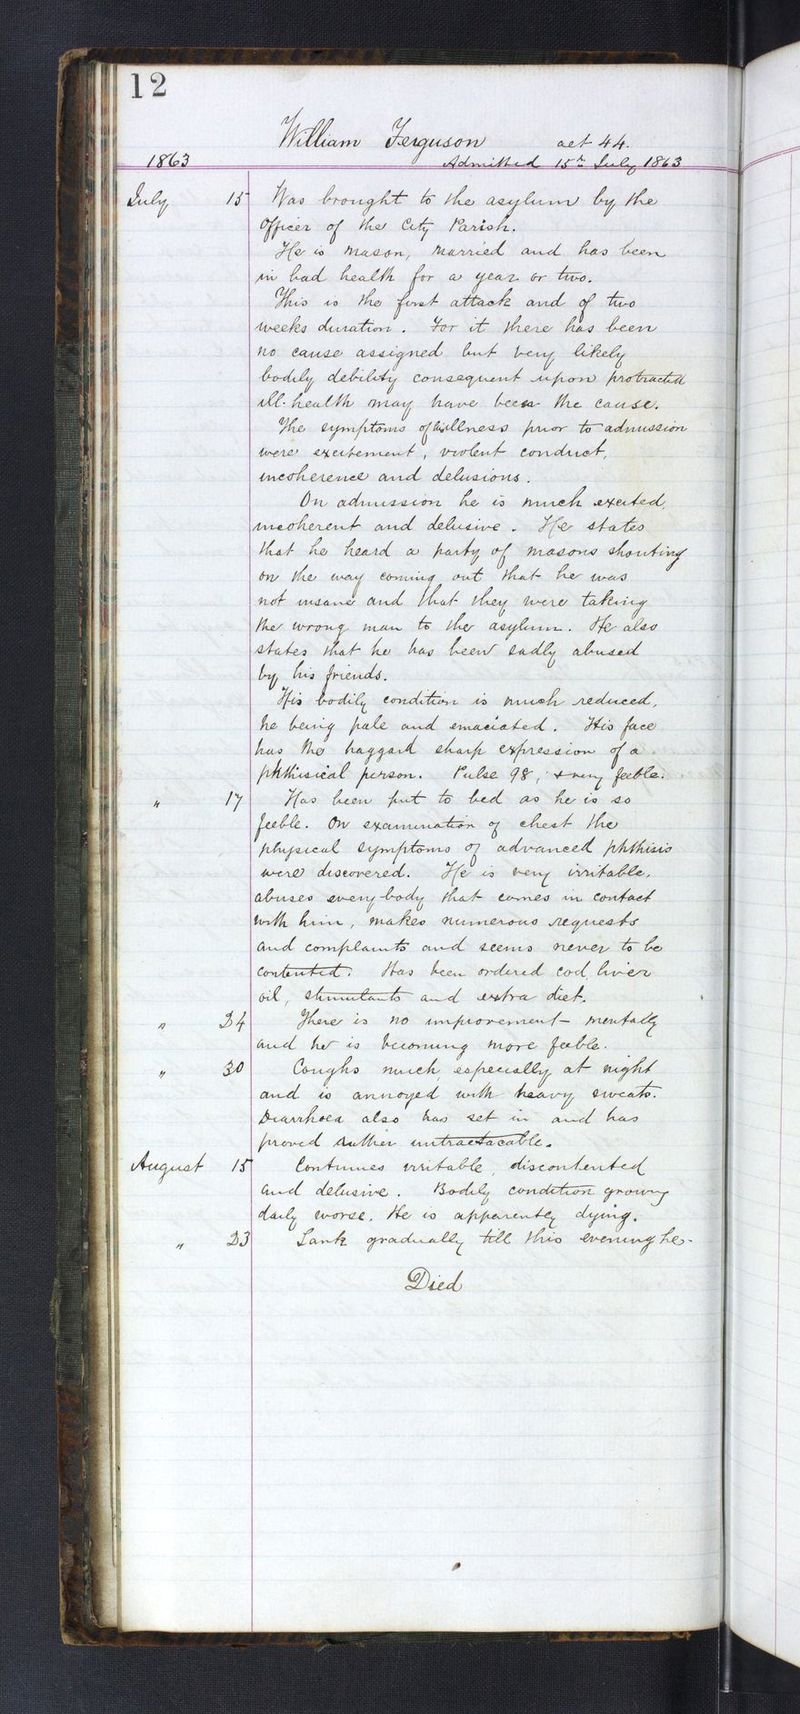 12
William Ferguson aet 44.
1863 Admitted 15th July 1863
July 15 Was brought to the asylum by the
Officer of the City Parish.
He is mason, married and has been
in bad health for a year or two.
This is the first attack and of two
weeks duration. For it there has been
no cause assigned but very likely
bodily debility consequent upon protracted
ill-health may have been the cause.
The symptoms of his illness prior to admission
were excitement, violent conduct,
incoherence and delusions.
On admission he is much excited,
incoherent and delusive. He states
that he heard a party of masons shouting
on the way coming out that he was
not insane and that they were taking
the wrong man to the asylum. He also
states that he has been sadly abused
by his friends.
His bodily condition is much reduced,
he being pale and emaciated. His face
has the haggard sharp expression of a
phthisical person. Pulse 98, & very feeble.
" 17 Has been put to bed as he is so
feeble. On examination of chest the
physical symptoms of advanced phthisis
were discovered. He is very irritable,
abuses every-body that comes in contact
with him, makes numerous requests
and complaints and seems never to be
contented. Has been ordered cod liver
oil, stimulants and extra diet.
" 24 There is no improvement mentally
and he is becoming more feeble.
" 30 Coughs much, especially at night
and is annoyed with heavy sweats.
Diarrhoea also has set in and has
proved rather untractacable.
August 15 Continues irritable, discontented
and delusive. Bodily condition growing
daily worse. He is apparently dying.
" 23 Sank gradually till this evening he-
Died